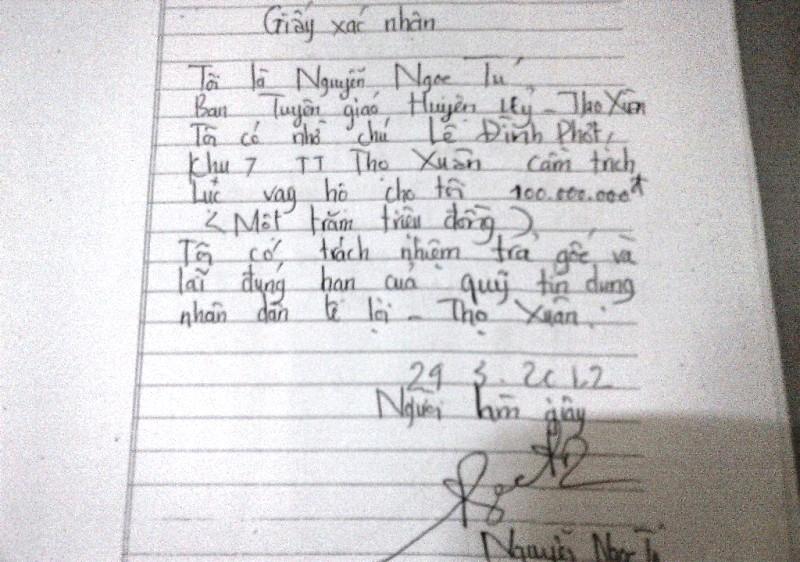 Giấy xác nhận
Tôi là Nguyễn Ngọc Tú
Ban Tuyên giáo Huyện ủy - Thọ Xuân
Tôi có nhờ chú Lê Đình Phót,
Khu 7 TT Thọ Xuân cầm trích
Lục vay hộ cho tôi 100.000.000đ
(Một trăm triệu đồng)
Tôi có trách nhiệm trả gốc và
lãi đúng hạn của quỹ tín dụng
nhân dân lê lợi - Thọ Xuân.
29 3. 2012
Người làm giấy
Nguyễn Ngọc Tú